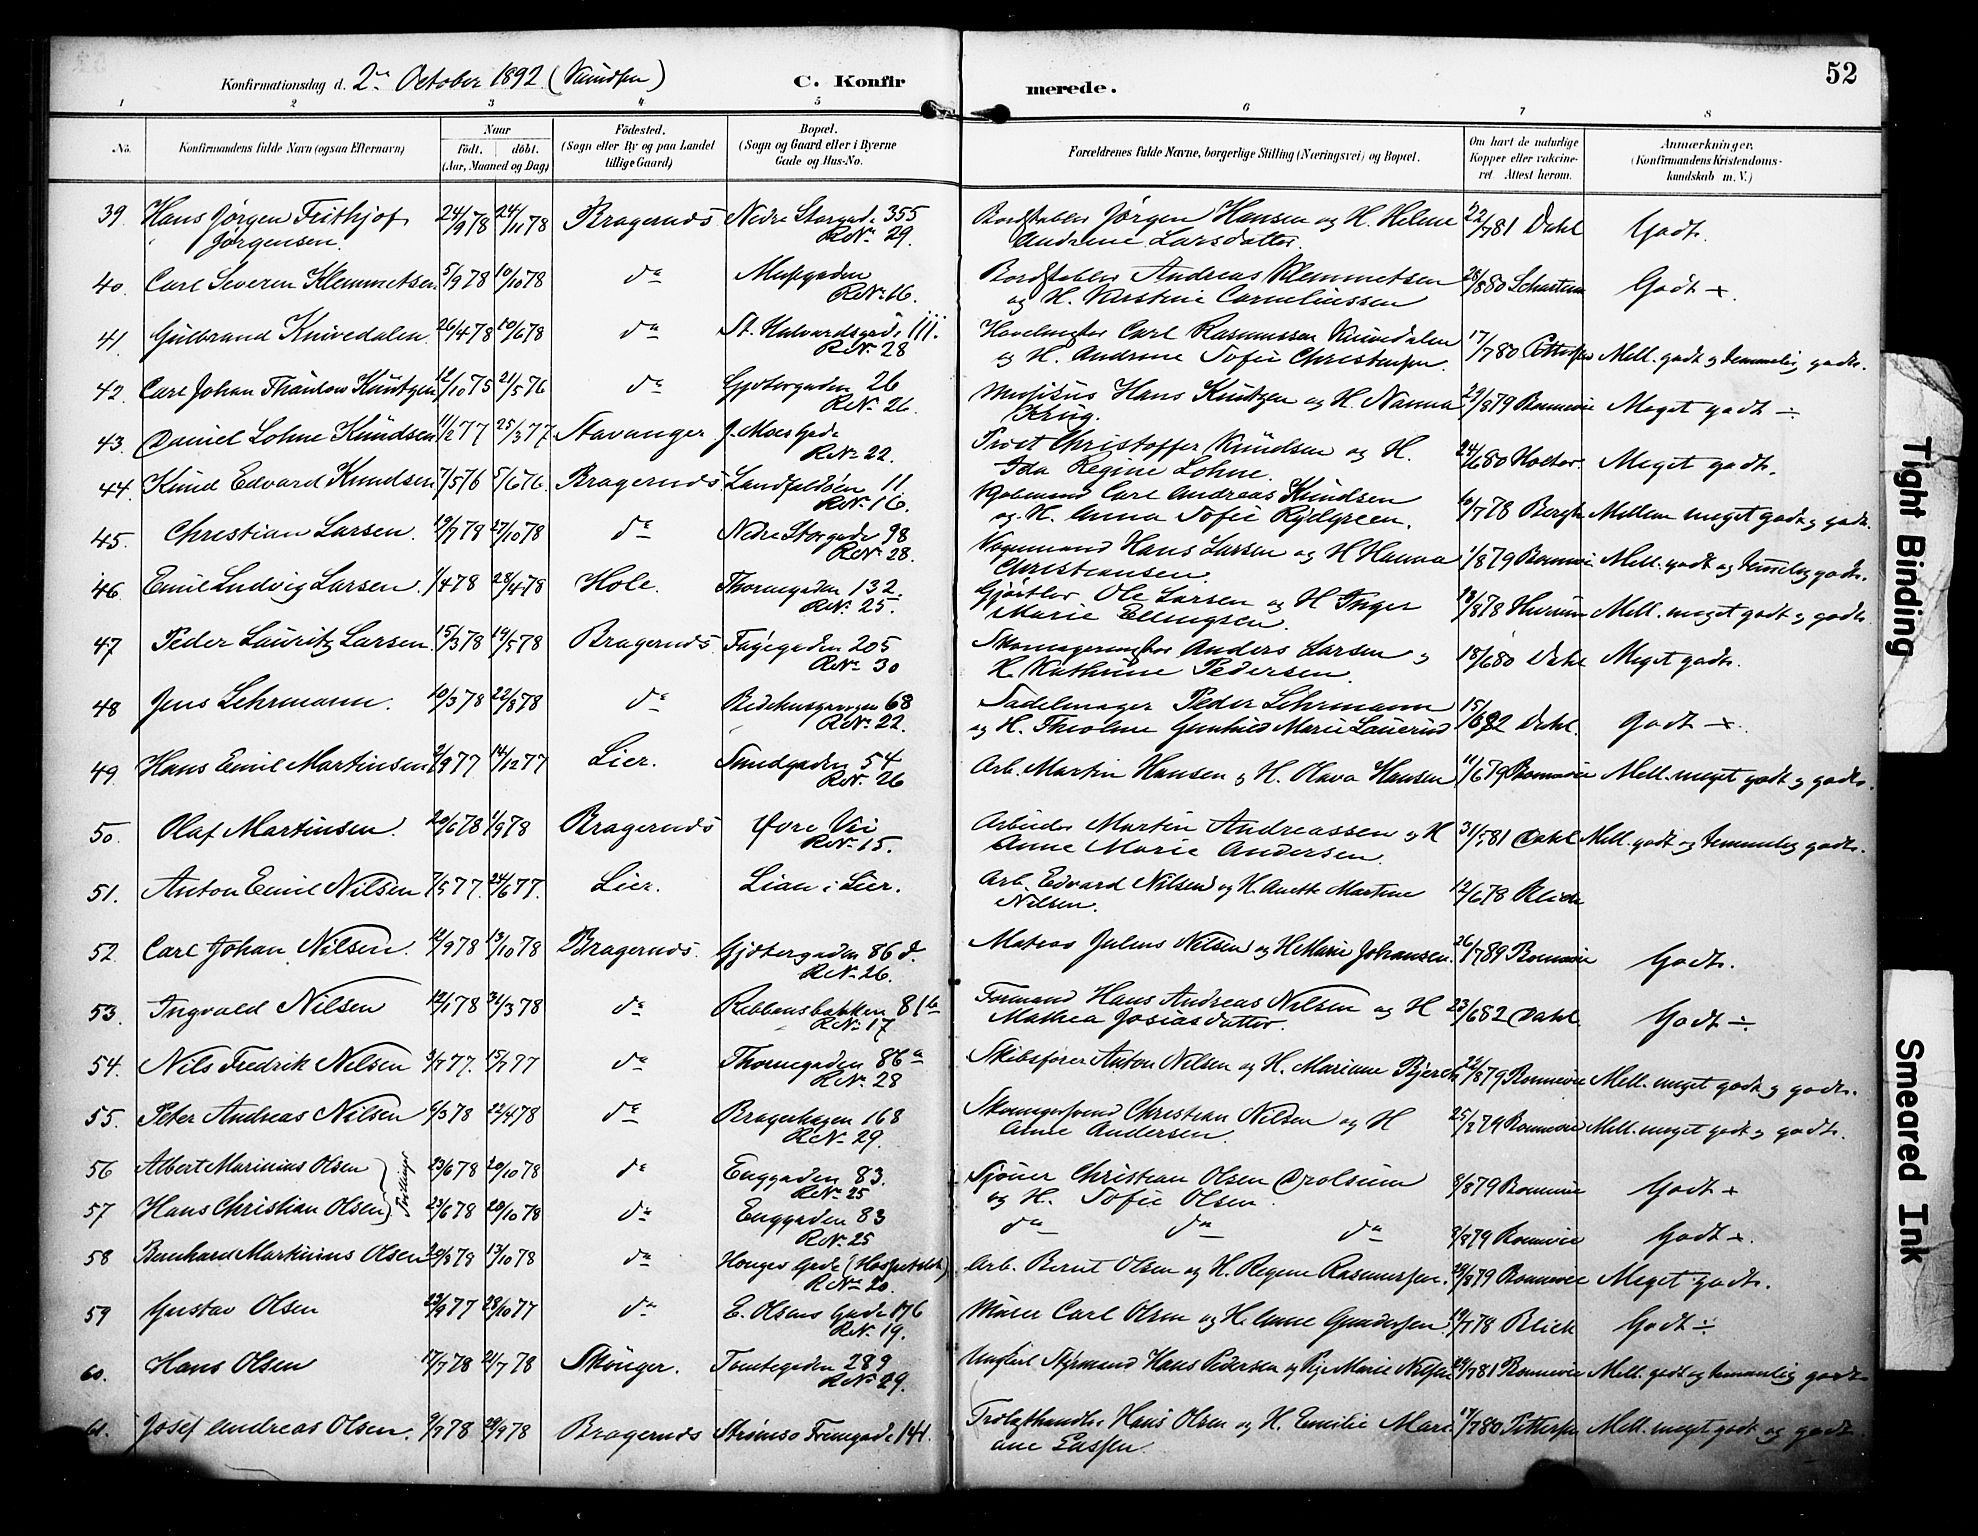 52
Konfirmationsdag d. 2den October 1892 (Knudsen) C. Konfirmerede.
1 2 3 4 5 6 7 8
No. Konfirmandens fulde Navn (ogsaa Efternavn) Naar födt. döbt. (Aar, Maaned og Dag) Födested. (Sogn eller By og paa Landet tillige Gaard) Bopæl. (Sogn og Gaard eller i Byerne Gade og Hus-No.) Forældrenes fulde Navne, borgerlige Stilling (Næringsvei) og Bopæl. Om havt de naturlige Kopper eller vakcineret. Attest herom. Anmærkninger. (Konfirmandens Kristendomskundskab m. V.)
39 Hans Jørgen Frithjof Jørgensen. 24/9 78 24/11 78 Bragernæs Nedre Storgade 355 R.No. 29. Jørgen Hansen og H. Helene Andrene Larsdatter. 22/7 81 Dahl Godt.
40. Carl Severin Klemmetsen 5/9 78 10/10 78 do R.No. 16. Andreas Klemmetsen og H. Karstine Corneliussen 28/8 80 Godt +.
41. Gulbrand Knivedalen 26/4 78 10/6 78 do St. Halvardsgade 111. R.No. 28 Carl Rasmussen Knivedalen og H. Andrine Sofie Christensen. 17/7 80 Mell. godt og temmelig godt.
42. Carl Johan Thaulow Kuntzen 12/10 75 21/5 76 do Gjætergaden 26 R.No. 26. Musikus Hans Kuntzen og H. Nanna Krug. 29/8 79 Meget godt ÷
43. Daniel Lohne Knudsen 11/2 77 25/3 77. Stavanger J. Moes Gade R.No. 22. Provst Christoffer Knudsen og H. Ida Regine Lohne. 24/6 80 Meget godt.
44. Knud Edvard Knudsen 7/5 76 5/6 76. Bragernæs Landfaldøen 11 R.No. 16. Carl Andreas Knudsen og H. Anna Sofie Rydgreen. 10/7 78 Bergh Mellem meget godt og godt.
45. Christian Larsen. 19/7 78 27/10 78 do Nedre Storgade 98 R.No. 28. Vognmand Hans Larsen og H. Hanna Christiansen. 1/8 79 Mell. godt og temmelig godt.
46. Emil Ludvig Larsen. 1/4 78 28/4 78 Hole. Thornegaden 132. R.No. 25. Gjørtler Ole Larsen og H. Inger Marie Ellingsen. 13/8 78 Mell. meget godt og godt.
47 Peder Lauritz Larsen. 15/3 78 19/5 78 Bragernæs. Fagegaden 205 R.No. 30 Skomagermester Anders Larsen og H. Kathrine Pedersen. 18/6 80 Dahl Meget godt.
48 Jens Lehrmann. 10/3 78 22/8 78 do Bedehusgangen 68 R.No. 22. Sadelmager Peder Lehrmann og H. Theoline Gunhild Marie Lauerud 15/6 82 Dahl. Godt +.
49. Hans Emil Martinsen 2/9 77 14/12 77 Lier. Sandgaden 54 R.No. 26 Arb. Martin Hansen og H. Olava Hansen 11/6 79 Mell. meget godt og godt.
50. Olaf Martinsen. 20/6 78 1/9 78 Bragernæs Øvre Vei R.No. 15. Arbeider Martin Andreassen og H Anne Marie Andersen. 31/5 81 Dahl Mell. godt og temmelig godt.
51. Anton Emil Nilsen 7/5 77. 24/6 77. Lier. Lian i Lier. Arb. Edvard Nilsen og H. Anette Martine Nilsen. 12/6 78 Blich
52. Carl Johan Nilsen. 12/9 78 13/10 78 Bragernæs. Gjætergaden 86 d. R.No. 26. Matros Julius Nilsen og H. Marie Johansen. 26/7 89 Godt.
53. Ingvald Nilsen 12/1 78 31/3 78 do Ribbonsbakken 81b R.No. 17 Formand Hans Andreas Nilsen og H Mathea Josiasdatter. 23/6 82 Dahl. Godt ÷
54. Nils Fredrik Nilsen 3/7 77. 15/7 77 do Thornegaden 86a R.No. 28 Skibsfører Anton Nilsen og H. Mariane Bjerck 22/8 79 Mell. meget godt og godt.
55. Peter Andreas Nilsen 6/3 78 22/4 78 do Bragerhagen 168 R.No. 29. Christian Nilsen og H Anne Andersen. 25/2 79 Mell. meget godt og godt.
56 Albert Marinius Olsen Tvillinger 23/6 78 20/10 78 do Enggaden 83. R.No. 25 Sjouer Christian Olsen og H. Sofie Olsen. 8/8 79 Godt +
57 Hans Christian Olsen 23/6 78 20/10 78 do Enggaden 83 R.No. 25 do do do 8/8 79 Godt +.
58 Bernhard Martinius Olsen 20/8 78 13/10 78 do Hauges Gade R.No. 20. Arb. Bernt Olsen og H. Regine Rasmussen. 29/8 79 Meget godt.
59 Gustav Olsen 23/9 77 28/10 77 do E. Olsens Gade 176 R.No. 19. Murer Carl Olsen og H. Anne Gundersen 19/7 78 Blich Godt ÷
60. Hans Olsen 17/7 78 21/7 78 Skouger. Tomtegaden 289 R.No. 29. Ungkarl Styrmand Hans Pedersen og Pige Marie Nilsen 29/7 81 Mell. godt og temmelig godt
61. Josef Andreas Olsen. 9/7 78 29/9 78 Bragernæs Strømsø Tverrgade 141. Trælasthandler Hans Olsen og H. Emilie Mariane Enssen. 17/7 80 Mell. meget godt og godt
Tight Binding
Smeared Ink